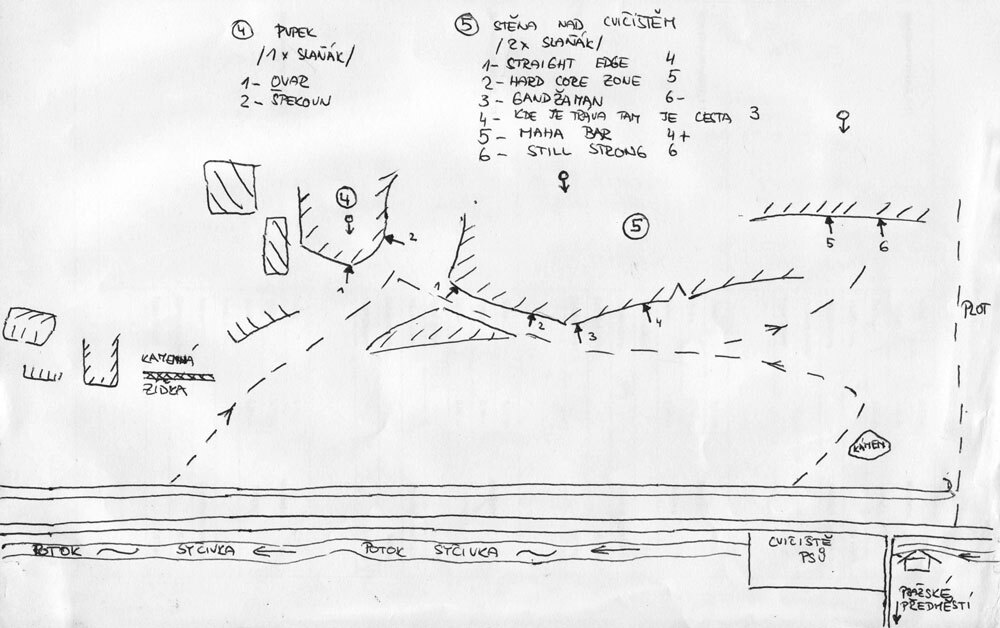 4 PUPEK
/1x SLAŇÁK/
1- OVAR
2- ŠPEKOUN
5 STĚNA NAD CVIČIŠTĚM
/2x SLAŇÁK/
1- STRAIGHT EDGE 4
2- HARD CORE ZONE 5
3- GANDŽAMAN 6-
4- KDE JE TRÁVA TAM JE CESTA 3
5- MAHA BAR 4+
6- STILL STRONG 6
4
5
2
1
1
2
3
4
5
6
PLOT
KAMENNÁ
ZÍDKA
KÁMEN
POTOK SYČIVKA
POTOK SYČIVKA
CVIČIŠTĚ
PSŮ
PRAŽSKÉ
PŘEDMĚSTÍ